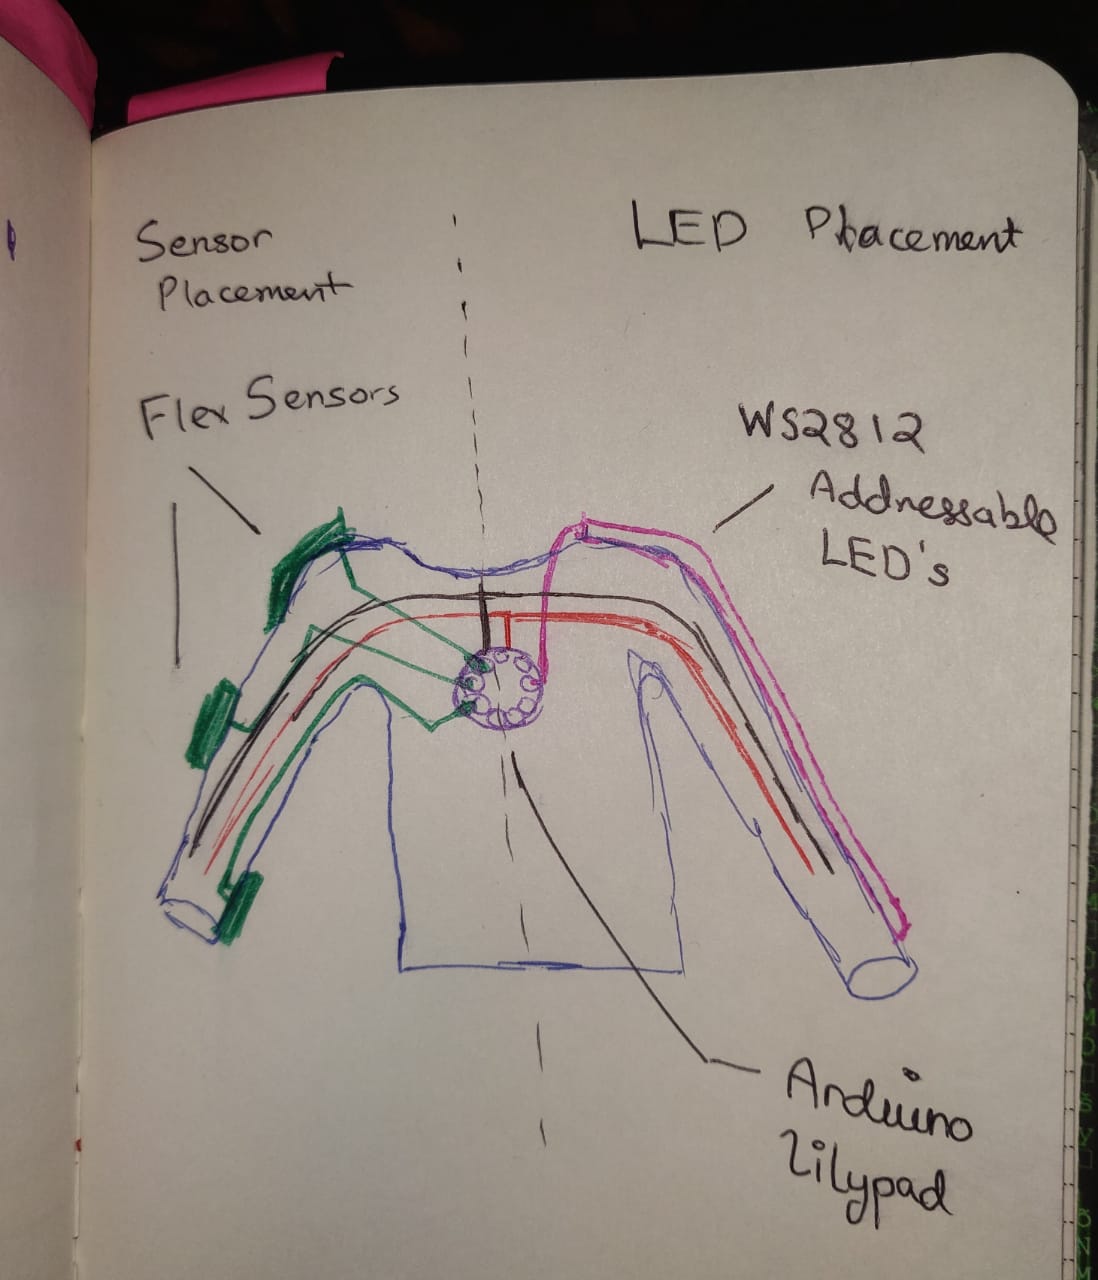 Sensor
Placement
LED Placement
Flex Sensors
WS2812
Addressable
LED's
Arduino
Lilypad